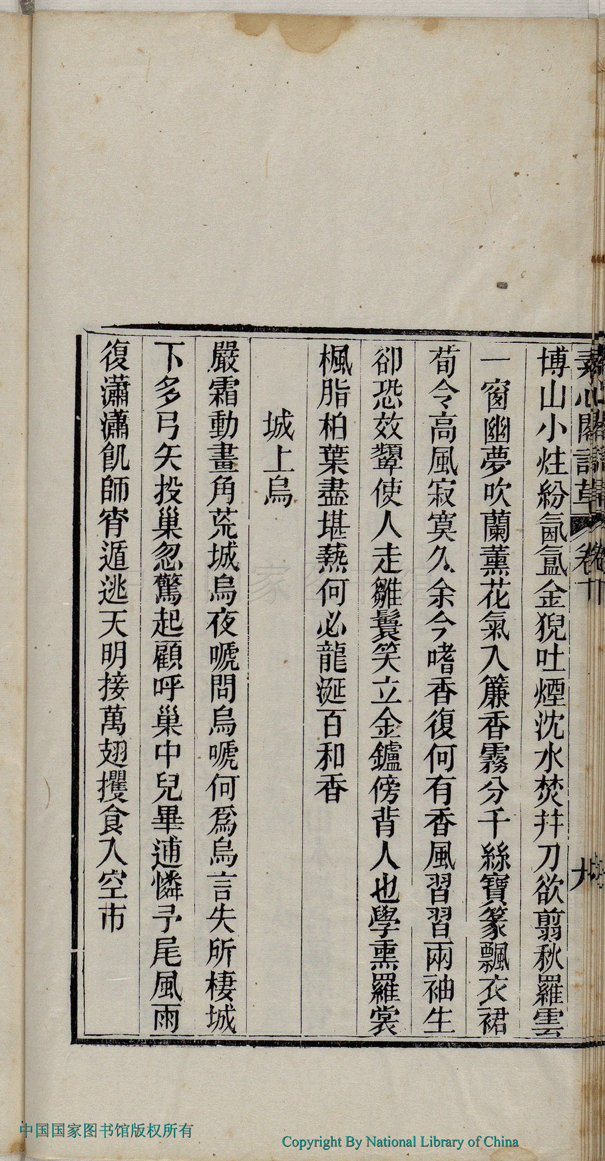 素心閣詩草 卷下 九
博山小炷紛氤氳金猊吐煙沈水焚并刀欲翦秋羅雲
一窗幽夢吹蘭薰花氣入簾香霧分千絲寶篆飄衣裙
荀令高風寂寞久余今嗜香復何有香風習習兩袖生
卻恐效顰使人走雛鬟笑立金鑪傍背人也學熏羅裳
楓脂柏葉盡堪爇何必龍涎百和香
城上烏
嚴霜動畫角荒城烏夜嗁問烏嗁何爲烏言失所棲城
下多弓矢投巢忽驚起顧呼巢中兒畢逋憐予尾風雨
復瀟瀟飢師宵遁逃天明接萬翅攫食入空市
中国国家图书馆版权所有
Copyright By National Library of China